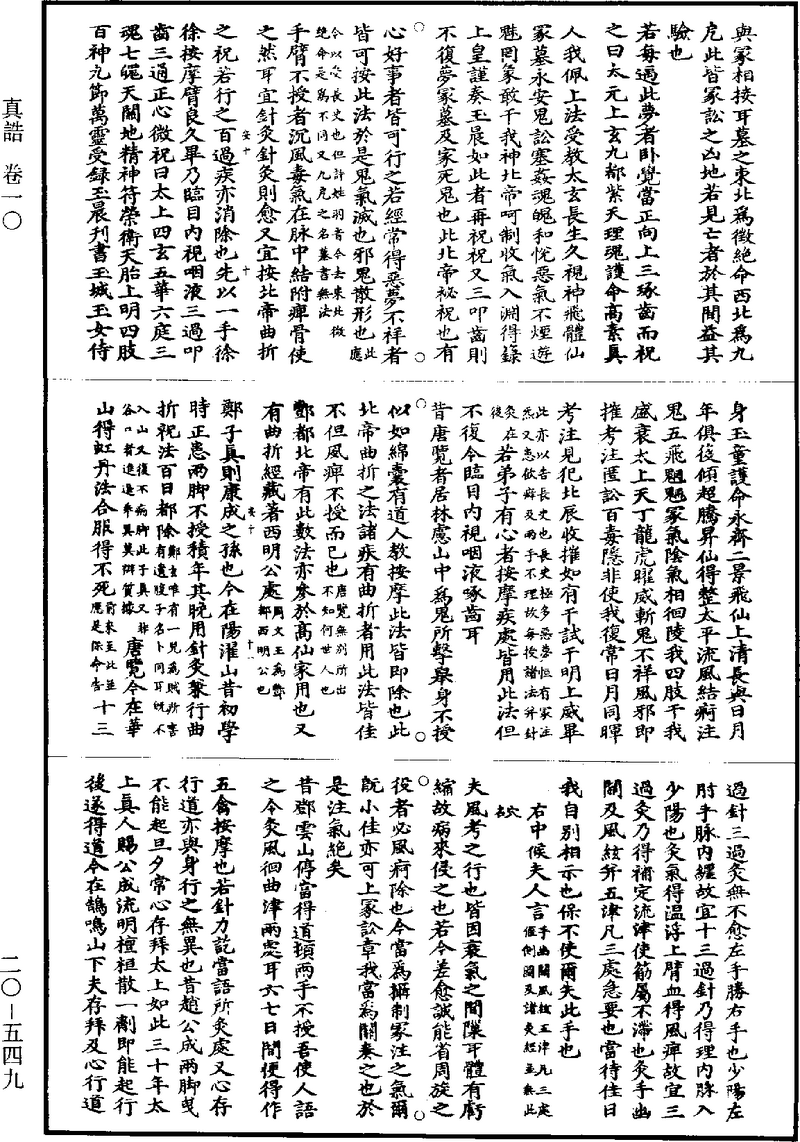 真誥 卷一〇
二〇—五四九
與冢相接耳墓之東北為徵絕命西北為九
戹此皆冢訟之凶地若見亡者於其間益其
驗也
若每遇此夢者卧覺當正向上三琢齒而祝
之曰太元上玄九都紫天理魂護命高素真
人我佩上法受教太玄長生久視神飛體仙
冢墓永安鬼訟塞姦魂魄和悅惡氣不煙遊
魅罔象敢干我神北帝呵制收氣入淵得籙
上皇謹奏玉晨如此者再祝祝又三叩齒則
不復夢冢墓及家死鬼也此北帝祕祝也有
心好事者皆可行之若經常得惡夢不祥者
皆可按此法於是鬼氣滅也邪鬼散形也此應
令以受長史也但許姓羽音今去東北徵
絕命是為不同又九戹之名墓書無法
手臂不授者沉風毒氣在脉中結附痺骨使
之然耳宜針灸針灸則愈又宜按北帝曲折
之祝若行之百過疾亦消除也先以一手徐
徐按摩臂良久畢乃臨目內視咽液三過叩
齒三通正心微祝曰太上四玄五華六庭三
魂七魄天關地精神符榮衛天胎上明四肢
百神九節萬靈受錄玉晨刊書玉城玉女侍
身玉童護命永齊二景飛仙上清長與日月
年俱後傾超騰昇仙得整太平流風結痾注
鬼五飛魍魎冢氣陰氣相徊陵我四肢干我
盛衰太上天丁龍虎曜威斬鬼不祥風邪即
摧考注匿訟百毒隱非使我復常日月同暉
考注見犯北辰收摧如有干試干明上威畢
此亦以告長史也長史極多惡夢恒有冢注
炁又患飲癖及兩手不理故每授諸法并針
灸在後
若弟子有心者按摩疾處皆用此法但
不復令臨目內視咽液啄齒耳
昔唐覽者居林慮山中為鬼所擊舉身不授
似如綿囊有道人教按摩此法皆即除也此
北帝曲折之法諸疾有曲折者用此法皆佳
不但風痺不授而已也唐覽無別所出
不知何世人也
酆都北帝有此數法亦參於高仙家用也又
有曲折經藏著西明公處周文王為酆
都西明公也
鄭子真則康成之孫也今在陽濯山昔初學
時正患兩脚不授積年其晚用針灸兼行曲
折祝法百日都除鄭玄唯有一兒為賊所害
有遺腹子名卜同耳既不
入山又復不病脚此子真又非
谷口者進退乖異莫辨質據
唐覽今在華
山得虹丹法合服得不死前來至此並
應是保命告
十三
過針三過灸無不愈左手勝右手也少陽左
肘手脉內纏故宜十三過針乃得理內脉入
少陽也灸氣得溫浮上臂血得風痺故宜三
過灸乃得補定流津使筋屬不滯也灸手幽
關及風絃并五津凡三處急要也當待佳日
我自別相示也保不使爾失此手也
右中候夫人言手幽關風絃五津凡三處
偃側圖及諸灸經並無此
夫風考之行也皆因衰氣之間隟耳體有虧
縮故病來侵之也若今差愈誠能省周旋之
役者必風痾除也今當為攝制冢注之氣爾
既小佳亦可上冢訟章我當為關奏之也於
是注氣絕矣
昔鄧雲山停當得道頓兩手不授吾使人語
之令灸風徊曲津兩處耳六七日間便得作
五禽按摩也若針力訖當語所灸處又心存
行道亦與身行之無異也昔趙公成兩脚曳
不能起旦夕常心存拜太上如此三十年太
上真人賜公成流明檀桓散一劑即能起行
後遂得道今在鵠鳴山下夫存拜及心行道